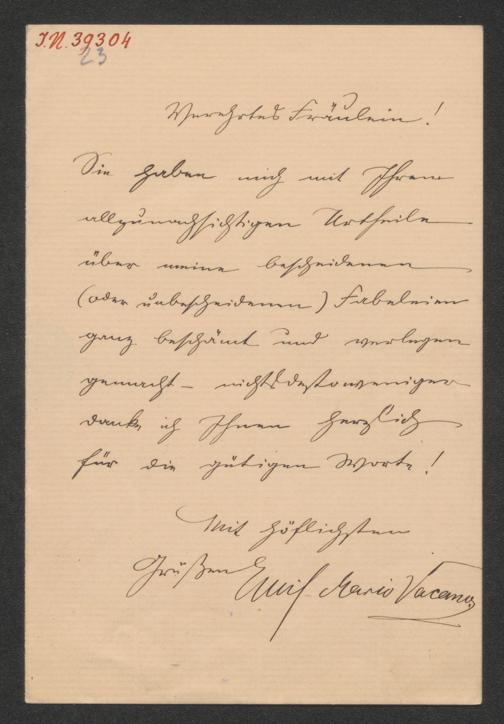 I.N. 39304
23
Verehrtes Fräulein!
Sie haben mich mit Ihrem
allzunachsichtigen Urtheile
über meine bescheidenen
(oder unbescheidenen) Fabeleien
ganz beschämt und verlegen
gemacht – nichtsdestoweniger
danke ich Ihnen herzlich
für die gütigen Worte!
Mit höflichsten
Grüßen Emil Mario Vacano